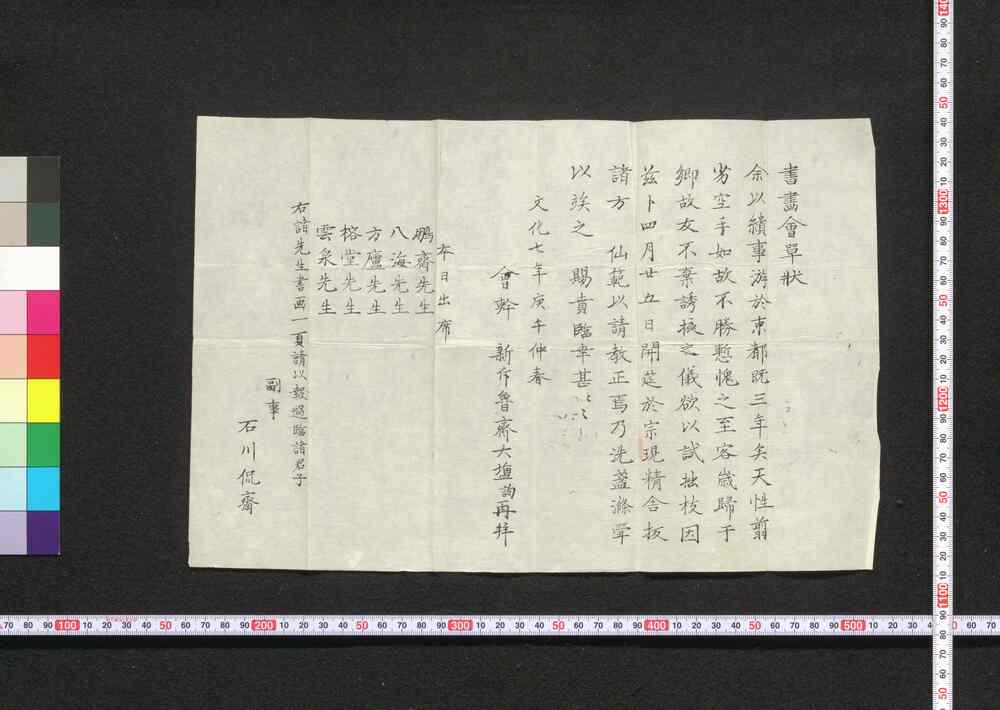 書畫會單狀
余以績事游於東都既三年矣天性翦
劣空手如故不勝慙愧之至客歳歸于
郷故友不棄誘掖之儀欲以試拙技因
茲卜四月廿五日開莚於宗現精舎扳
諸方　仙範以請教正焉乃洗盞滌斝
以竢之　賜賁臨幸甚
文化七年庚午仲春
會幹　新斥魯齋大塩詢再拝
本日出席
鵬齋先生
八海先生
方廬先生
榕堂先生
雲泉先生
右諸先生書画一頁請以報賁臨諸君子
副事
石川侃齋